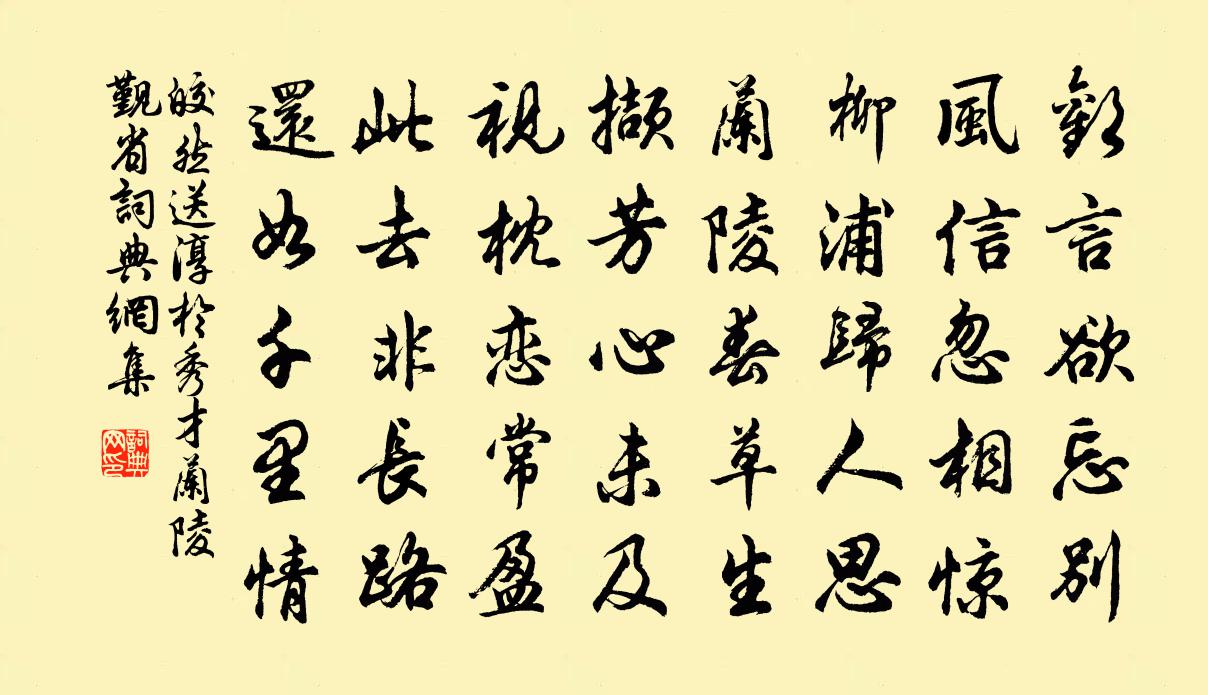 歡言欲忘別
風信忽相惊
柳浦歸人思
蘭陵春草生
擷芳心未及
視枕恋常盈
此去非長路
還如千里情
皎然送淳于秀才蘭陵
觐省詞典網集
詞典网印